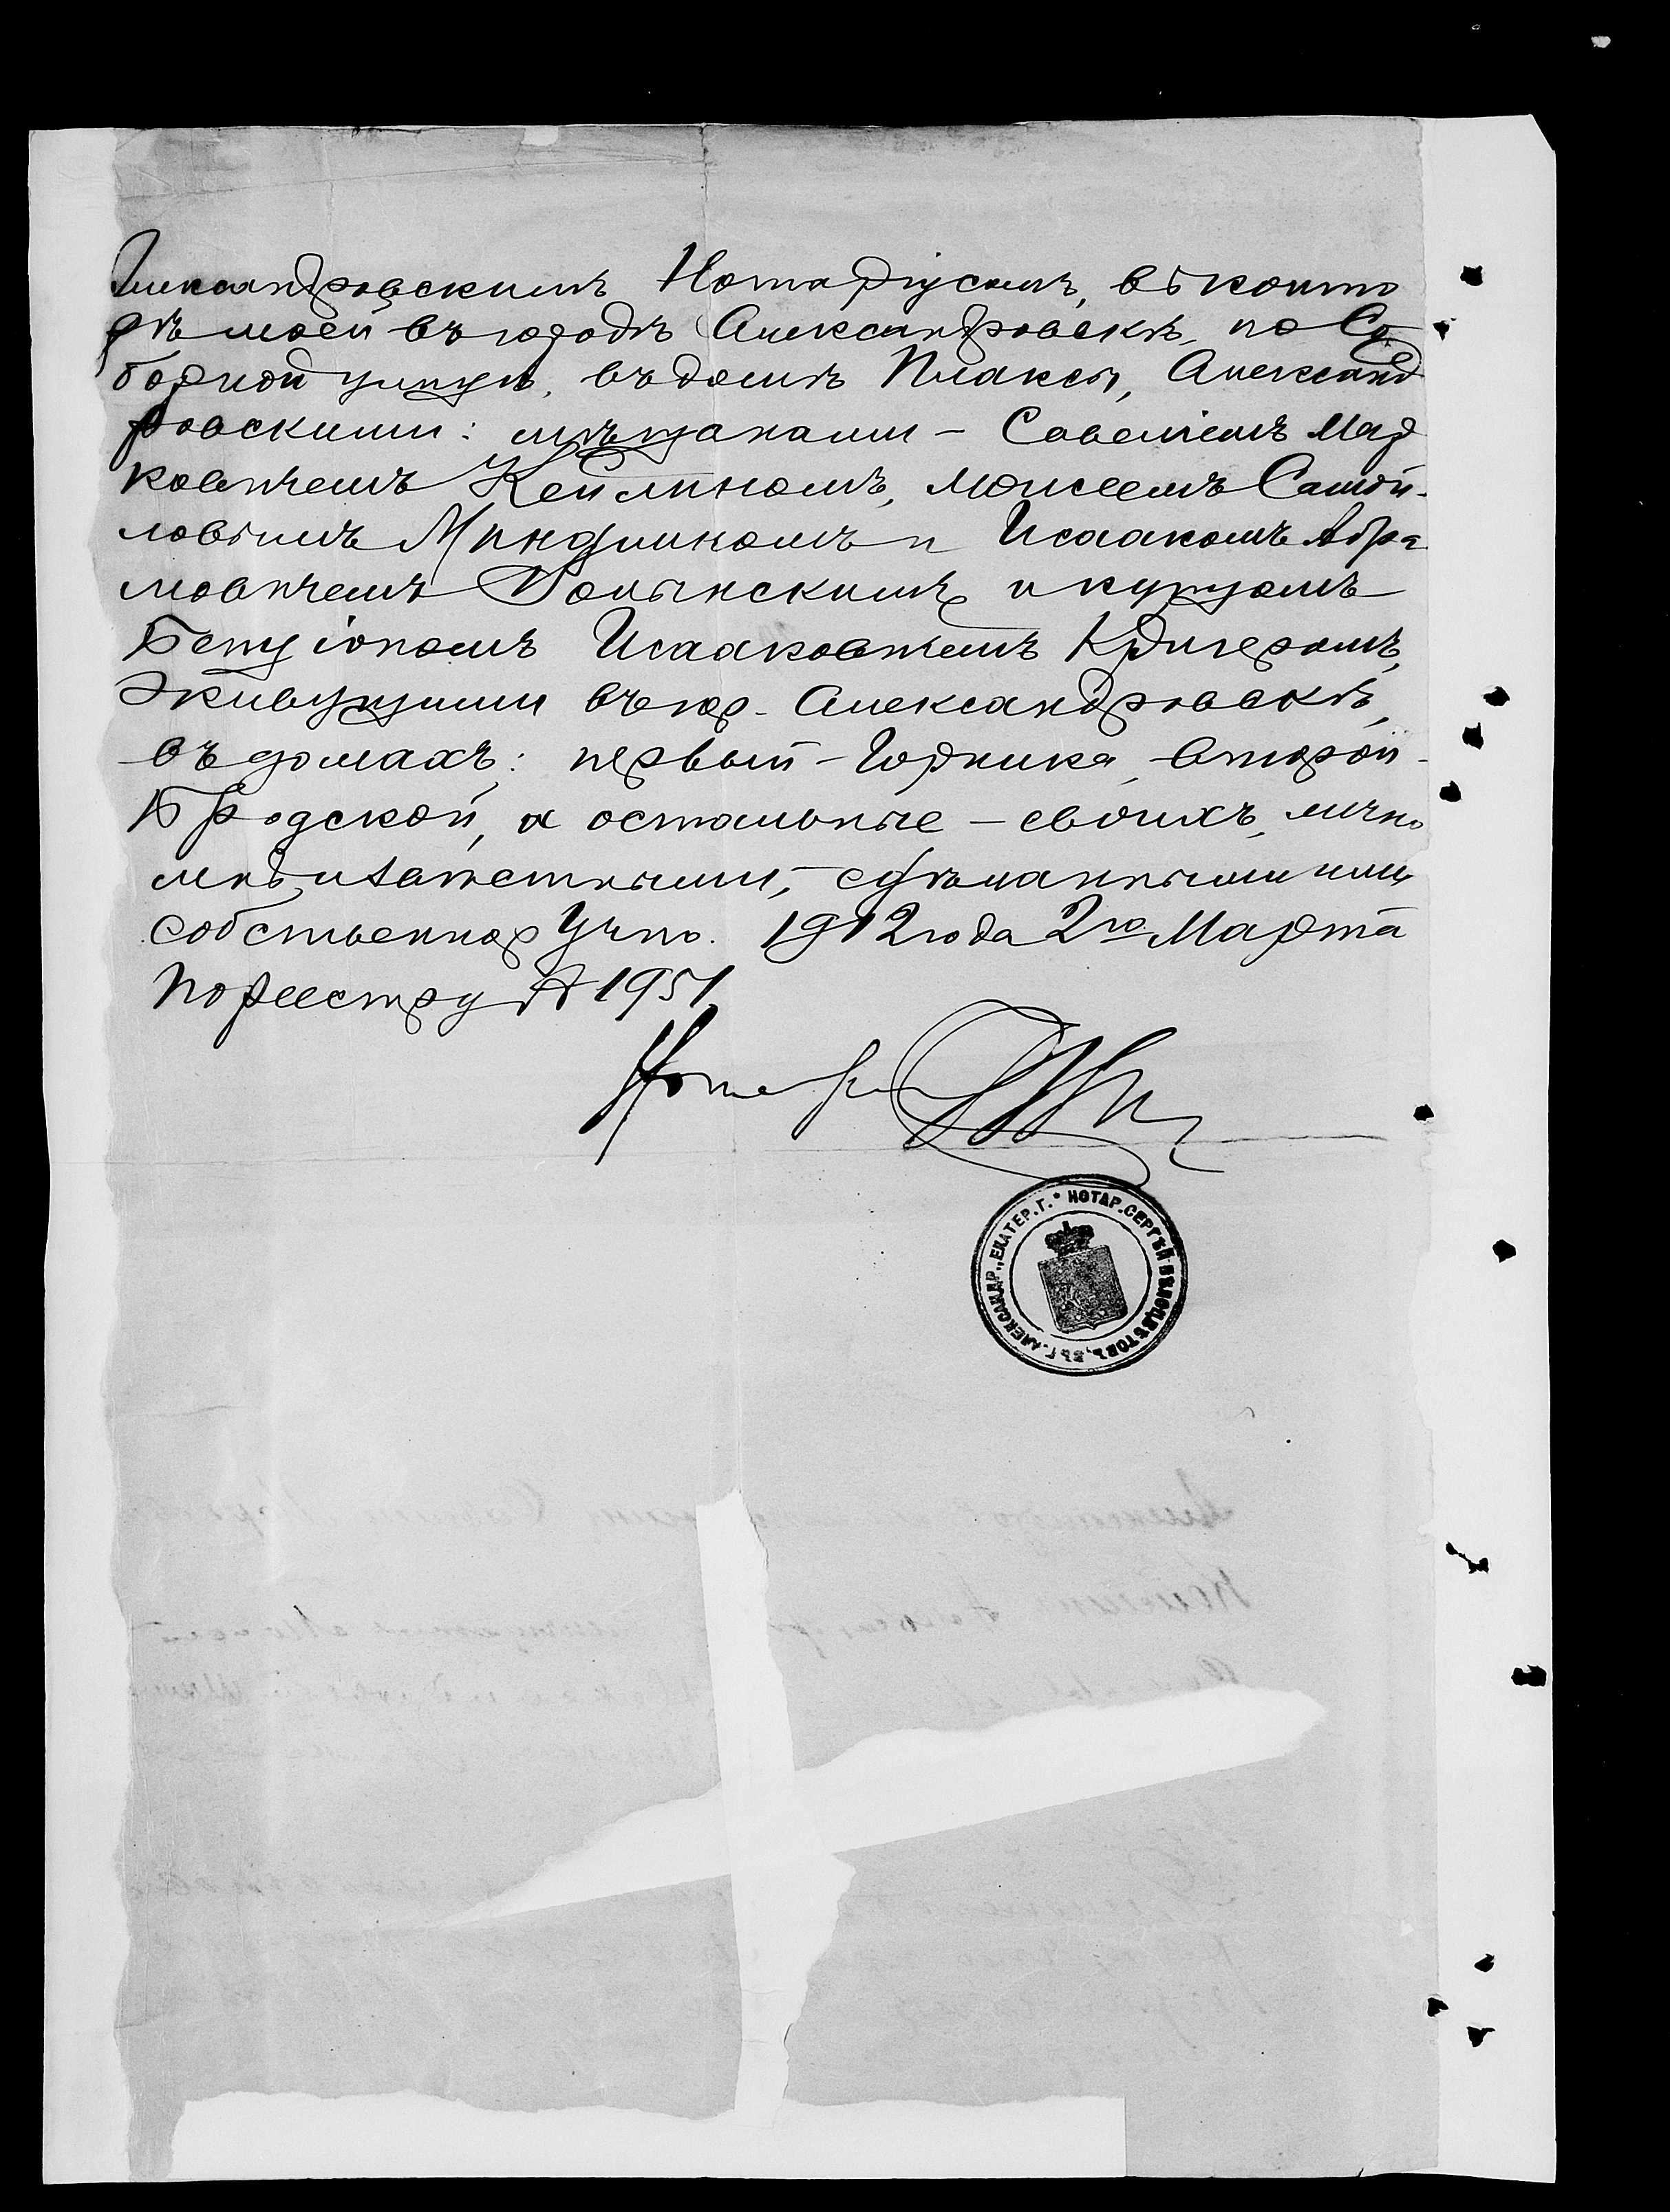 Александровскимъ Нотаріусомъ, въ конто
рѣ моей въ городѣ Александровскѣ, по Со
борной улицѣ, въ домѣ Плаксы, Александ
ровскими: мѣщанами – Савеліемъ Мар
ковичемъ Кейлинымъ, Моисеемъ Самой-
ловичемъ Миндлинымъ и Исаакомъ Абра
мовичемъ Волынскимъ и купцомъ
Исааковичемъ Кригеромъ,
живущими въ гор. Александровскѣ,
въ домахъ: первый – Горника, второй –
Бродской, а остальные – своихъ, лично
мнѣ извѣстными, сдѣланными ими
собственноручно. 1912 года 2го Марта
По реестру № 1951
Нотаріусъ
* НОТАР. СЕРГѢЙ БѢЛОЦВѢТОВЪ, ВЪ Г. АЛЕКСАНДР., ЕКАТЕР. Г.